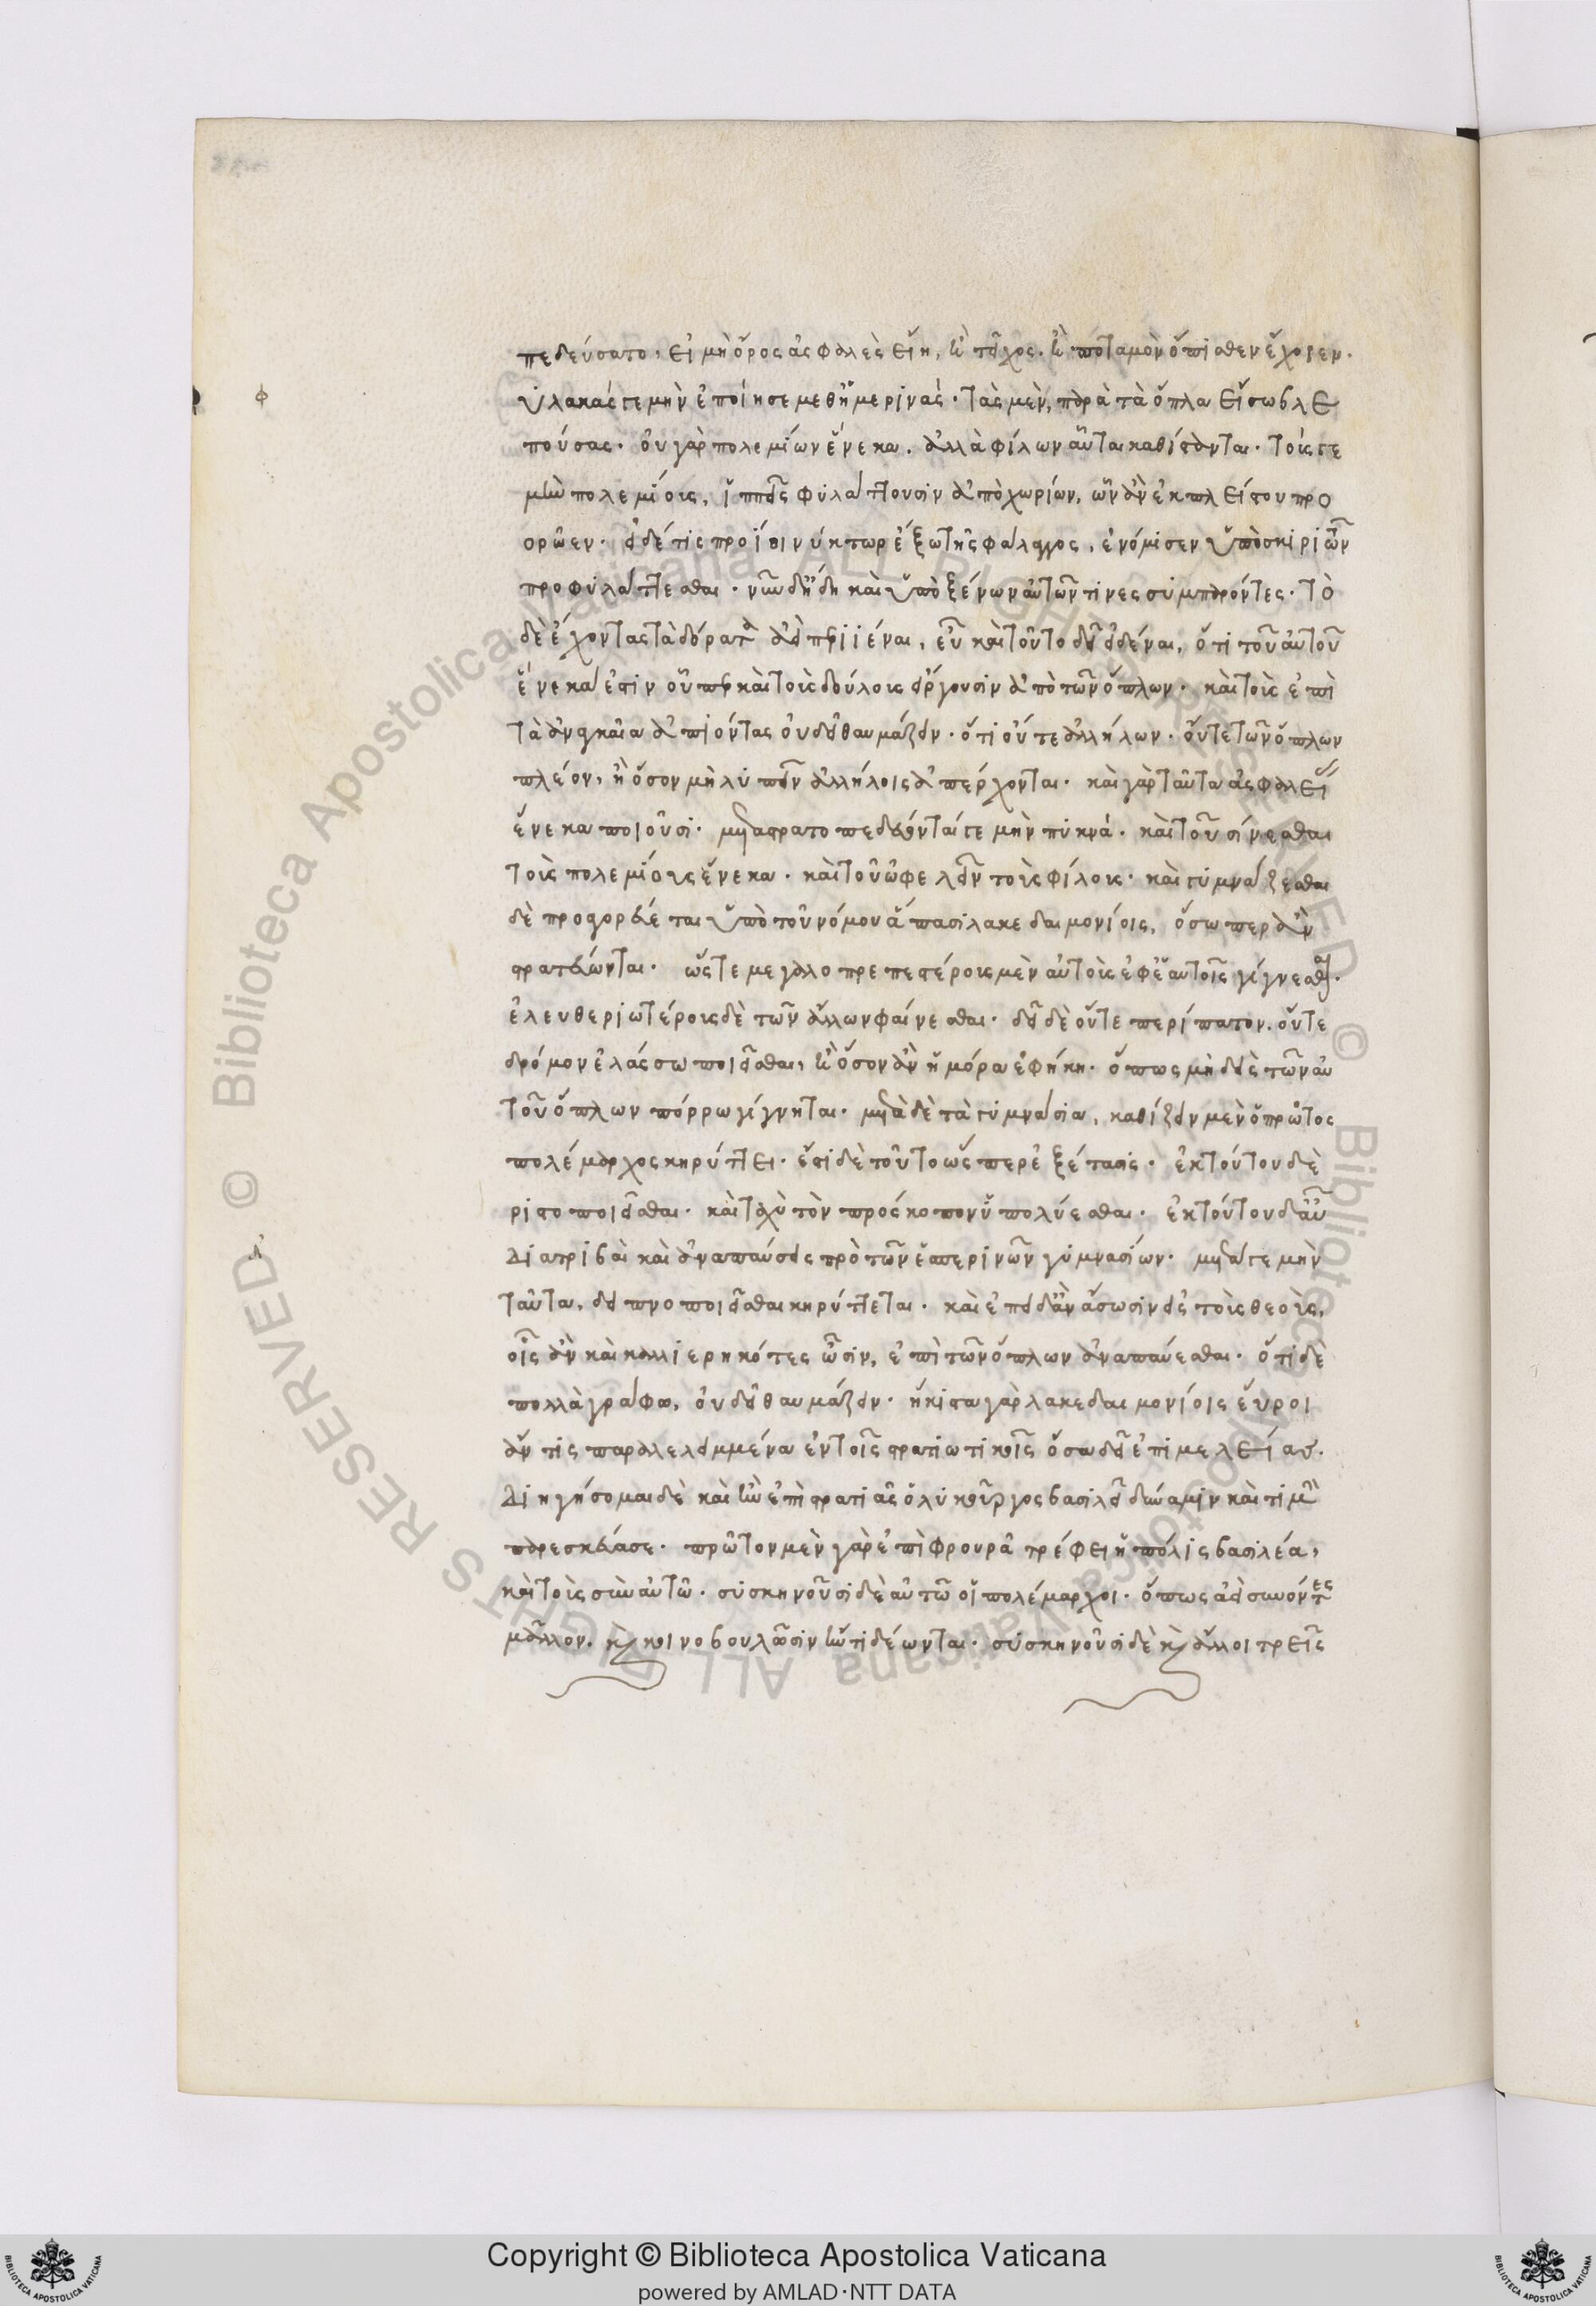 πεδεύσατο, εἰ μὴ ὄρος ἀσφαλὲς εἴη, ἢ τεῖχος. ἢ ποταμὸν ὄπισθεν ἔχοιεν.
φ
υλακάς γε μὴν ἐποίησε μεθημερινάς· τὰς μὲν, παρὰ τὰ ὅπλα εἴσω βλε
πούσας· οὐ γὰρ πολεμίων ἕνεκα. ἀλλὰ φίλων αὗται καθίστανται· τοίς γε
μὴν πολεμίοις, ἵππεῖς φυλάττουσιν ἀπὸ χωρίων, ὧν ἂν ἐκ πλείστου προ
ορῶεν· εἰ δέ τις προΐοι νύκτωρ ἔξω τῆς φάλαγγος, ἐνόμισεν ὑπὸ σκιριτῶν
προφυλάττεσθαι· νῦν δ' ἤδη καὶ ὑπὸ ξένων αὐτῶν τινες συμπαρόντες· τὸ
δὲ ἔχοντας τὰ δόρατα ἀεὶ περιιέναι, εὖ καὶ τοῦτο δεῖ εἰδέναι, ὅτι τοῦ αὐτοῦ
ἕνεκά ἐστιν οὗπερ καὶ τοὺς δούλους εἴργουσιν ἀπὸ τῶν ὅπλων· καὶ τοὺς ἐπὶ
τὰ ἀναγκαῖα ἀπιόντας οὐ δεῖ θαυμάζειν· ὅτι οὔτε ἀλλήλων· οὔτε τῶν ὅπλων
πλέον, ἢ ὅσον μὴ λυπεῖν ἀλλήλοις ἀπέρχονται· καὶ γὰρ ταῦτα ἀσφαλείας
ἕνεκα ποιοῦσι· μεταστρατοπεδεύονταί γε μὴν πυκνά· καὶ τοῦ σίνεσθαι
τοὺς πολεμίους ἕνεκα· καὶ τοῦ ὠφελεῖν τοὺς φίλους· καὶ γυμνάζεσθαι
δὲ προαγορεύεται ὑπὸ τοῦ νόμου ἅπασι λακεδαιμονίοις, ὅσωπερ ἂν
στρατεύωνται· ὥστε μεγαλοπρεπεστέροις μὲν αὐτοὺς ἐφ' ἑαυτοῖς γίγνεσθαι·
ἐλευθεριωτέροις δὲ τῶν ἄλλων φαίνεσθαι· δεῖ δὲ οὔτε περίπατον. οὔτε
δρόμον ἐλάσσω ποιεῖσθαι, ἢ ὅσον ἂν ἡ μόρα ἐφήκη· ὅπως μηδεὶς τῶν αὑ
τοῦ ὅπλων πόρρω γίγνηται· μετὰ δὲ τὰ γυμνάσια, καθίζειν μὲν ὁ πρῶτος
πολέμαρχος κηρύττει· ἔστι δὲ τοῦτο ὥσπερ ἐξέτασις· ἐκ τούτου δὲ
ριστοποιεῖσθαι· καὶ ταχὺ τὸν πρόσκοπον ὑπολύεσθαι· ἐκ τούτου δ' αὖ
διατριβαὶ καὶ ἀναπαύσεις πρὸ τῶν ἑσπερινῶν γυμνασίων· μετά γε μὴν
ταῦτα, δειπνοποιεῖσθαι κηρύττεται· καὶ ἐπειδὰν ᾄσωσιν εἰς τοὺς θεοὺς,
οἷς ἂν καὶ καλλιερηκότες ὦσιν, ἐπὶ τῶν ὅπλων ἀναπαύεσθαι· ὅτι δὲ
πολλὰ γράφω, οὐ δεῖ θαυμάζειν· ἥκιστα γὰρ λακεδαιμονίοις εὕροι
ἄν τις παραλελειμμένα ἐν τοῖς στρατιωτικοῖς ὅσα δεῖ ἐπιμελείας.
Διηγήσομαι δὲ καὶ ἣν ἐπὶ στρατιᾶς ὁ λυκοῦργος βασιλεῖ δύναμιν καὶ τιμὴν
παρεσκεύασε· πρῶτον μὲν γὰρ ἐπὶ φρουρᾶ τρέφει ἡ πόλις βασιλέα,
καὶ τοὺς σὺν αὐτῶ· συσκηνοῦσι δὲ αὐτῶ οἱ πολέμαρχοι· ὅπως ἀεὶ συνόντες
μᾶλλον. κ(αὶ) κοινοβουλῶσιν ἤν τι δέωνται· συσκηνοῦσι δὲ κ(αὶ) ἄλλοι τρεῖς
Copyright © Biblioteca Apostolica Vaticana
powered by AMLAD·NTT DATA